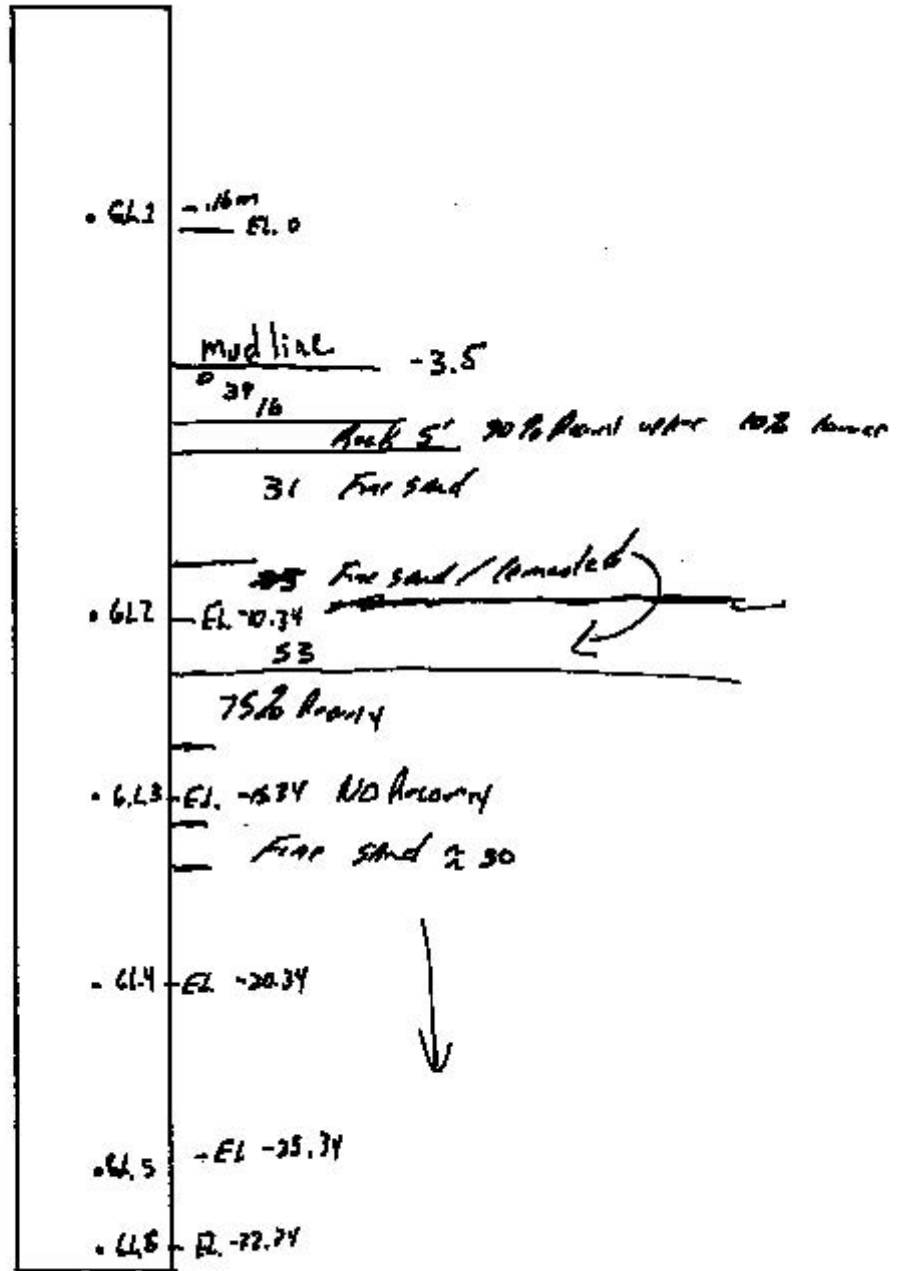 • GL1 - .16m
EL. 0
mudline -3.5
0 39 16
Rock 5' 90% upper 10%
31 Fine sand
Fine sand / Cemented
• GL2 - EL -10.34
53
75% Recovery
• GL3 - EL. -15.34 NO Recovery
Fine sand ≈ 30
• GL4 - EL -20.34
• GL5 - EL -25.34
- EL.